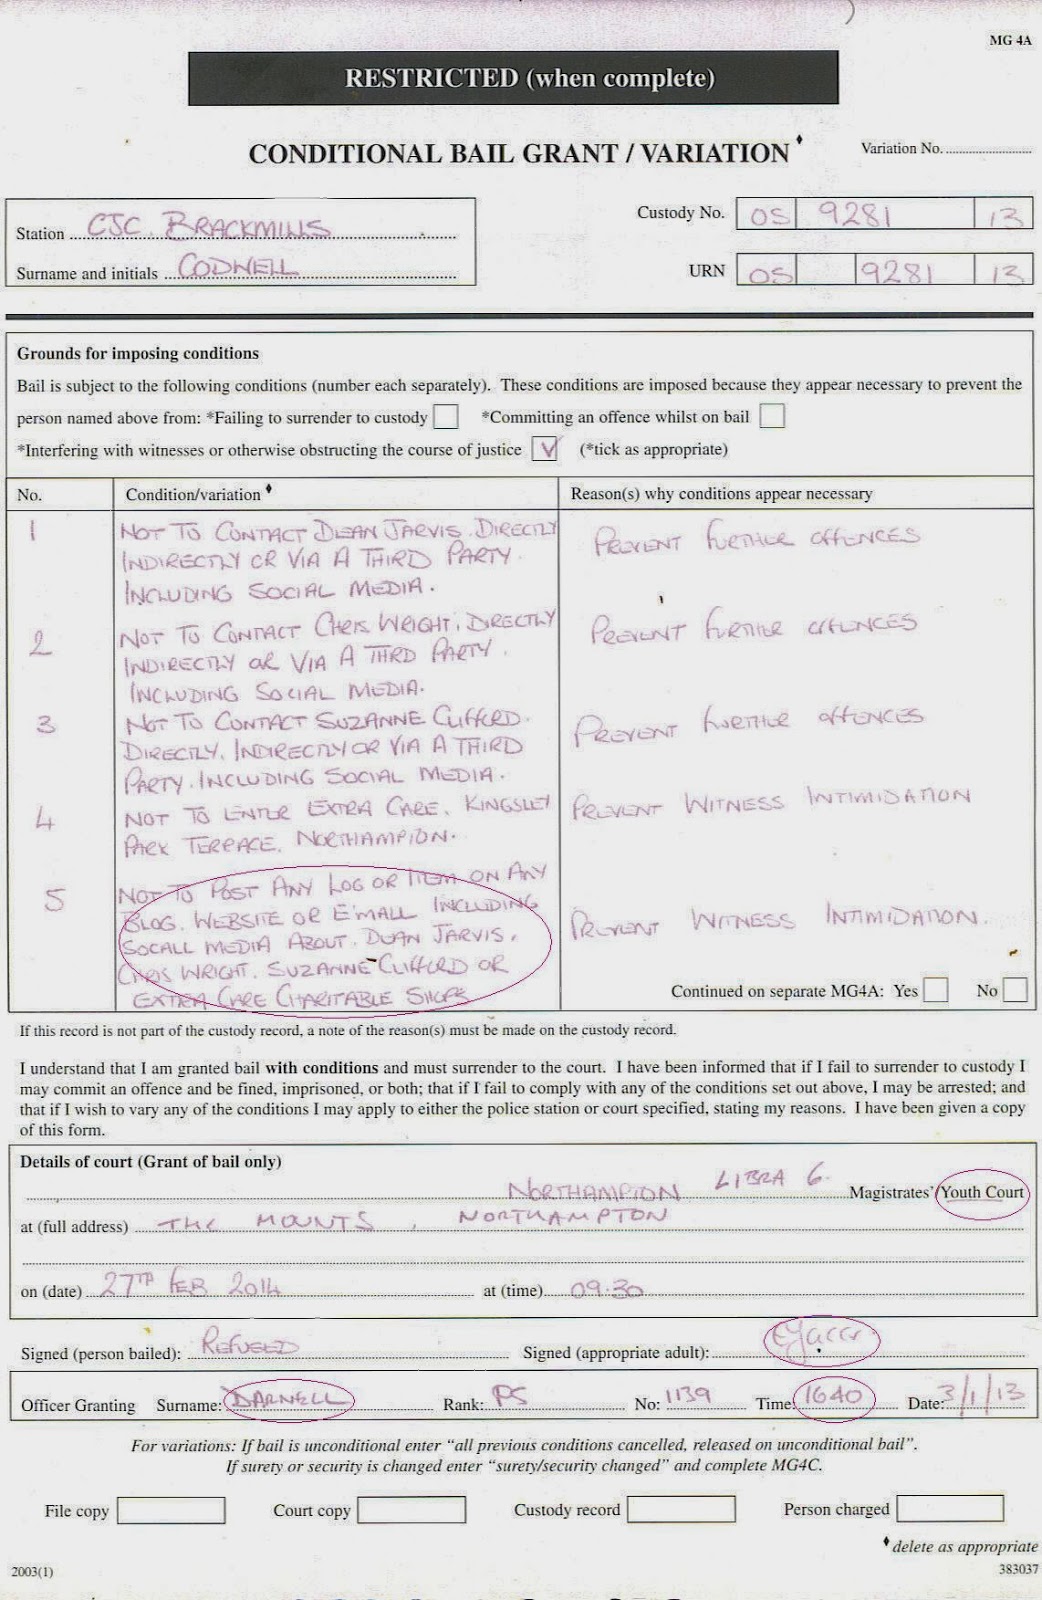 MG 4A
RESTRICTED (when complete)
CONDITIONAL BAIL GRANT / VARIATION♦
Variation No. ........................
Station CJC. BRACKMILLS
Custody No. OS 9281 13
Surname and initials CODWELL
URN OS 9281 13
Grounds for imposing conditions
Bail is subject to the following conditions (number each separately). These conditions are imposed because they appear necessary to prevent the
person named above from: *Failing to surrender to custody *Committing an offence whilst on bail
*Interfering with witnesses or otherwise obstructing the course of justice V (*tick as appropriate)
No. Condition/variation♦ Reason(s) why conditions appear necessary
1 NOT TO CONTACT DEAN JARVIS. DIRECTLY
INDIRECTLY OR VIA A THIRD PARTY.
INCLUDING SOCIAL MEDIA.
PREVENT FURTHER OFFENCES
2 NOT TO CONTACT CHRIS WRIGHT. DIRECTLY
INDIRECTLY OR VIA A THIRD PARTY.
INCLUDING SOCIAL MEDIA.
PREVENT FURTHER OFFENCES
3 NOT TO CONTACT SUZANNE CLIFFORD.
DIRECTLY, INDIRECTLY OR VIA A THIRD
PARTY. INCLUDING SOCIAL MEDIA.
PREVENT FURTHER OFFENCES
4 NOT TO ENTER EXTRA CARE. KINGSLEY
PARK TERRACE, NORTHAMPTON.
PREVENT WITNESS INTIMIDATION
5 NOT TO POST ANY LOG OR ITEM ON ANY
BLOG. WEBSITE OR E'MAIL INCLUDING
SOCALL MEDIA ABOUT. DEAN JARVIS,
CHRIS WRIGHT. SUZANNE CLIFFORD OR
EXTRA CARE CHARITABLE SHOPS
PREVENT WITNESS INTIMIDATION.
Continued on separate MG4A: Yes No
If this record is not part of the custody record, a note of the reason(s) must be made on the custody record.
I understand that I am granted bail with conditions and must surrender to the court. I have been informed that if I fail to surrender to custody I
may commit an offence and be fined, imprisoned, or both; that if I fail to comply with any of the conditions set out above, I may be arrested; and
that if I wish to vary any of the conditions I may apply to either the police station or court specified, stating my reasons. I have been given a copy
of this form.
Details of court (Grant of bail only)
NORTHAMPTON LIBRA 6. Magistrates'/Youth Court
at (full address) THE MOUNTS, NORTHAMPTON
on (date) 27TH FEB 2014 at (time) 09.30
Signed (person bailed): REFUSED Signed (appropriate adult):
Officer Granting Surname: DARNELL Rank: PS No: 1139 Time: 1640 Date: 3/1/13
For variations: If bail is unconditional enter "all previous conditions cancelled, released on unconditional bail".
If surety or security is changed enter "surety/security changed" and complete MG4C.
File copy Court copy Custody record Person charged
♦delete as appropriate
2003(1) 383037